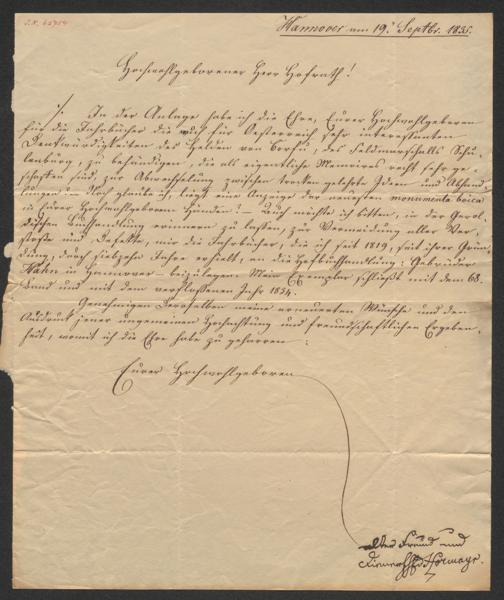 Hannover am 19. Septbr. 1835.
Hochwohlgeborener Herr Hofrath!
In der Anlage habe ich die Ehre, Eurer Hochwohlgeboren
für die Jahrbücher die auch für Oesterreich sehr interessanten
Denkwürdigkeiten des Helden von Corfu, des Feldmarschalls Schu-
lenburg, zu behändigen, die als eigentliche Memoires recht sehr ge-
schaffen sind, zur Abwechslung zwischen trocken gelehrte Ideen und Abhand-
lungen. – Noch glaube ich, liegt eine Anzeige der neuesten monumenta boica
in Eurer Hochwohlgeboren Händen? – Auch möchte ich bitten, in der Gerol-
dischen Buchhandlung erinnern zu lassen, zur Vermeidung aller Ver-
stöße und Defekte, mir die Jahrbücher, die ich seit 1819, seit ihrer Grün-
dung, durch siebzehn Jahre erhielt, an die Hofbuchhandlung: Gebrüder
Hahn in Hannover – beizulegen. Mein Exemplar schließt mit dem 68.
Band und mit dem verflossenen Jahr 1834.
Genehmigen Dieselben meine erneuerten Wünsche und den
Ausdruck jener ungemeinen Hochachtung und freundschaftlichen Ergeben-
heit, womit ich die Ehre habe zu geharren:
Eurer Hochwohlgeboren
alter Freund und
Diener Hormayr.